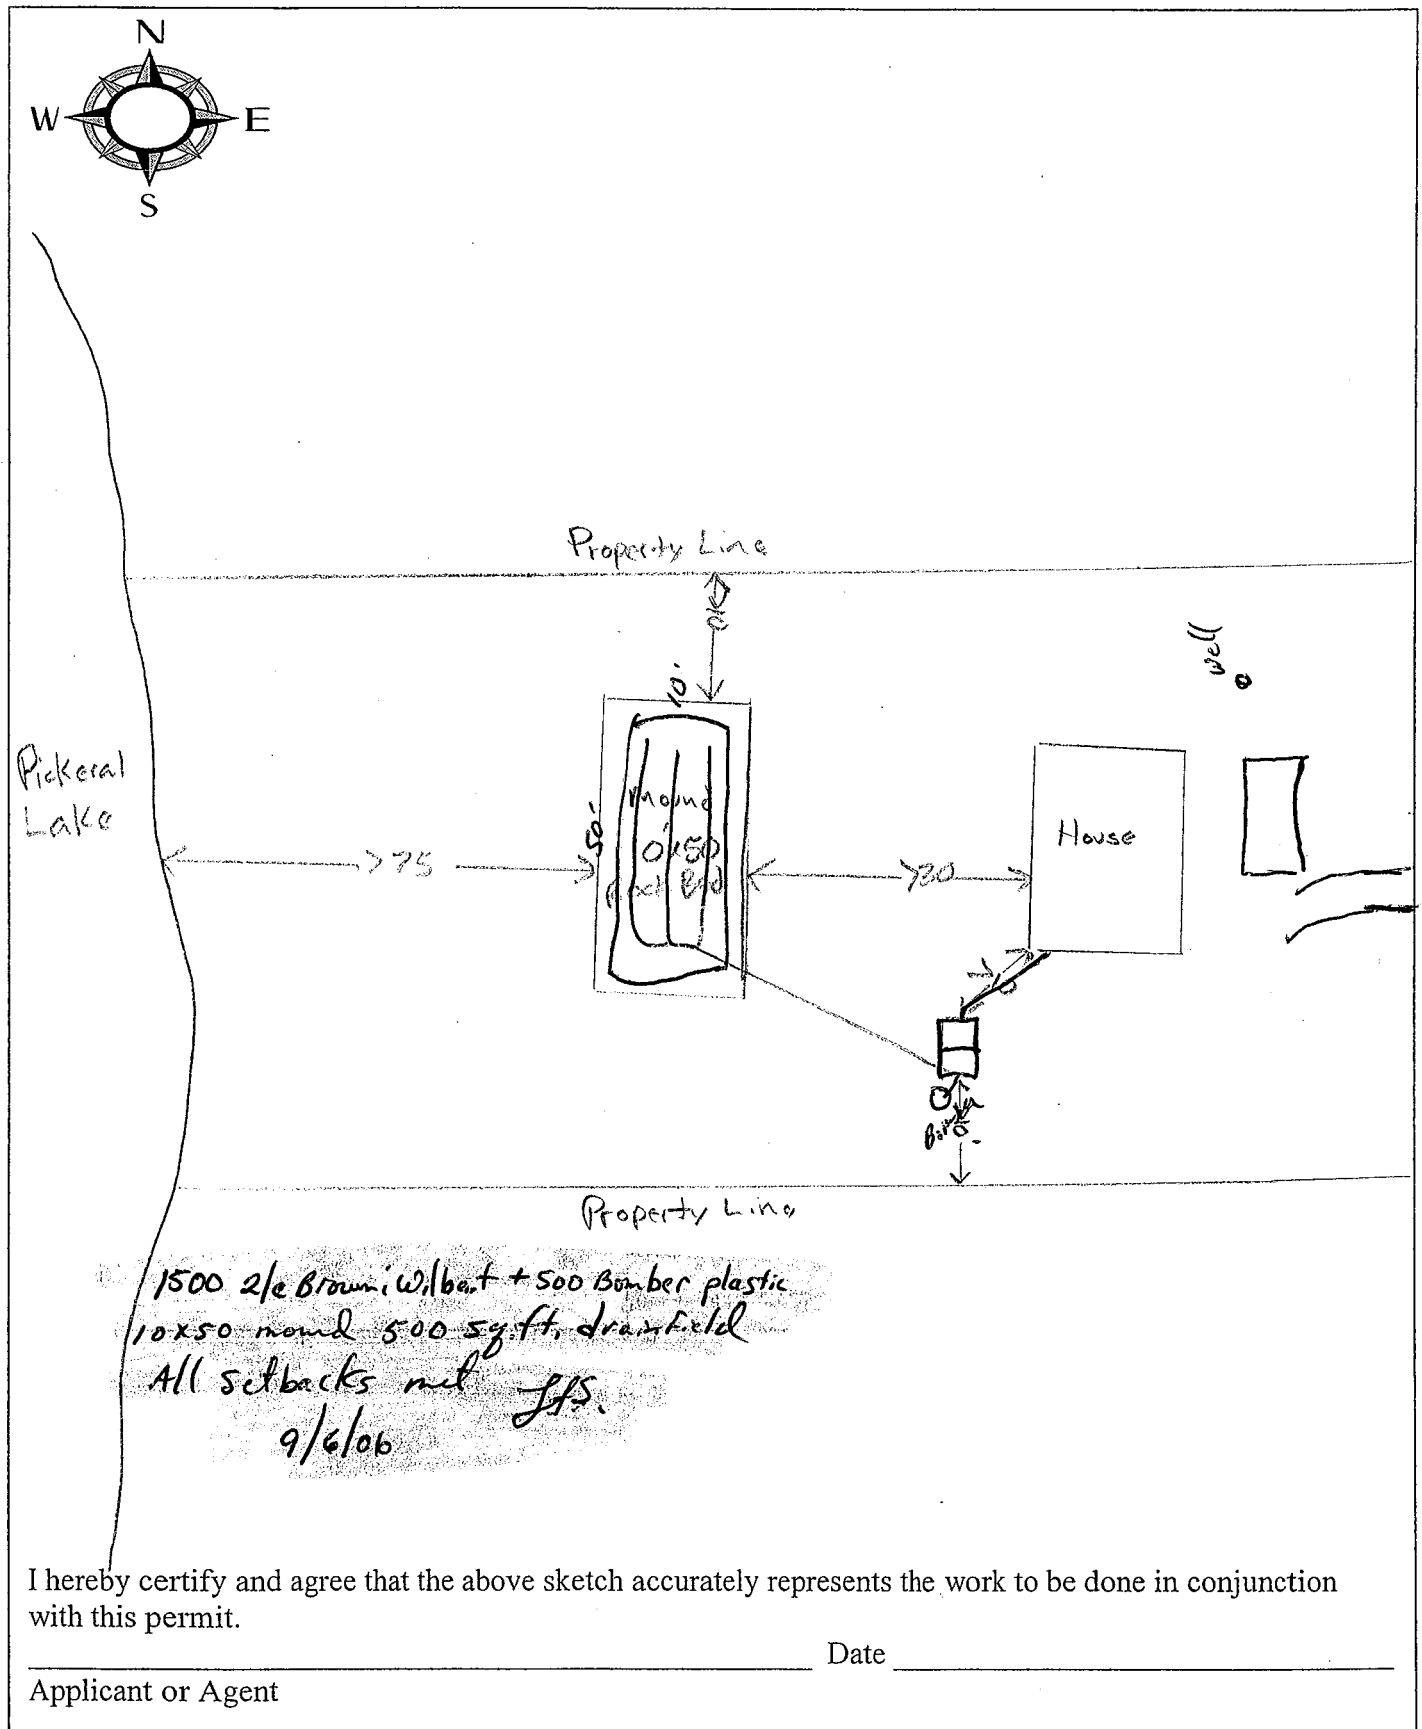 N
W E
S
Property Line
10'
Well
Pickeral
Lake
50'
mound
>75
>30
House
Property Line
1500 2/c Brown Wilbert + 500 Bomber plastic
10x50 mound 500 sq.ft. drainfield
All setbacks met
9/6/06
I hereby certify and agree that the above sketch accurately represents the work to be done in conjunction
with this permit.
Date
Applicant or Agent